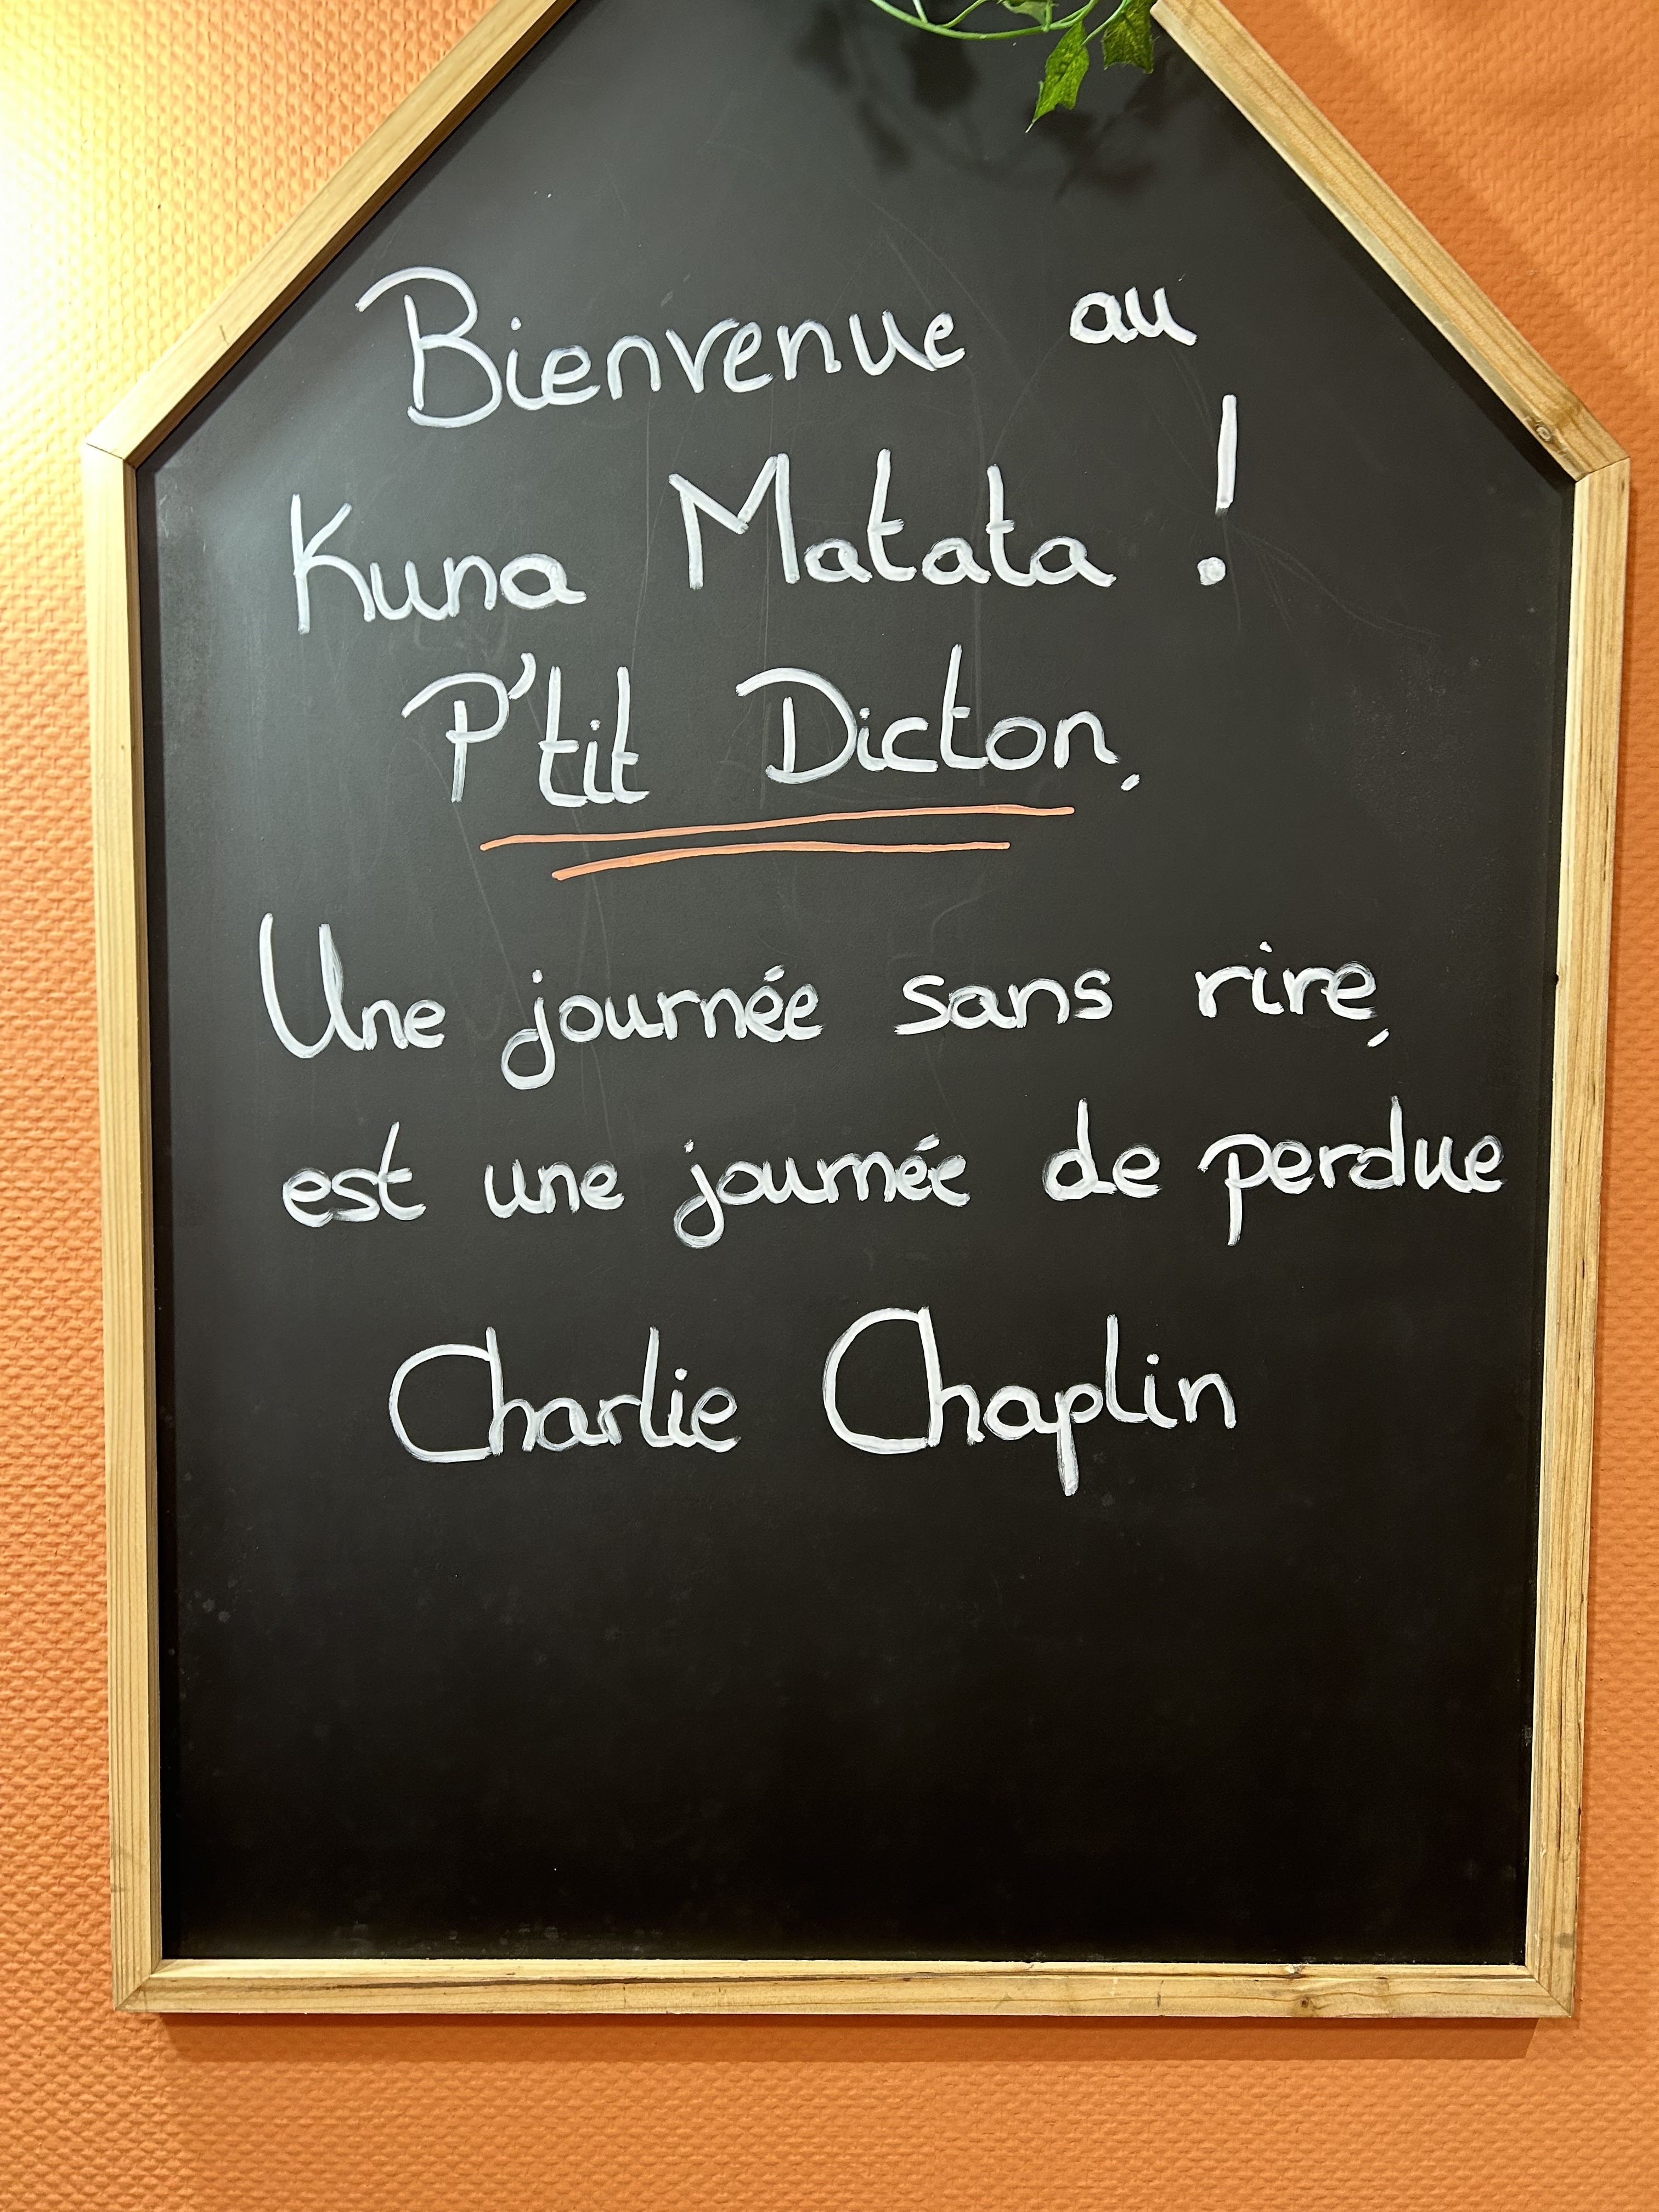 Bienvenue au
Kuna Matata !
P'tit Dicton,
Une journée sans rire,
est une journée de perdue
Charlie Chaplin